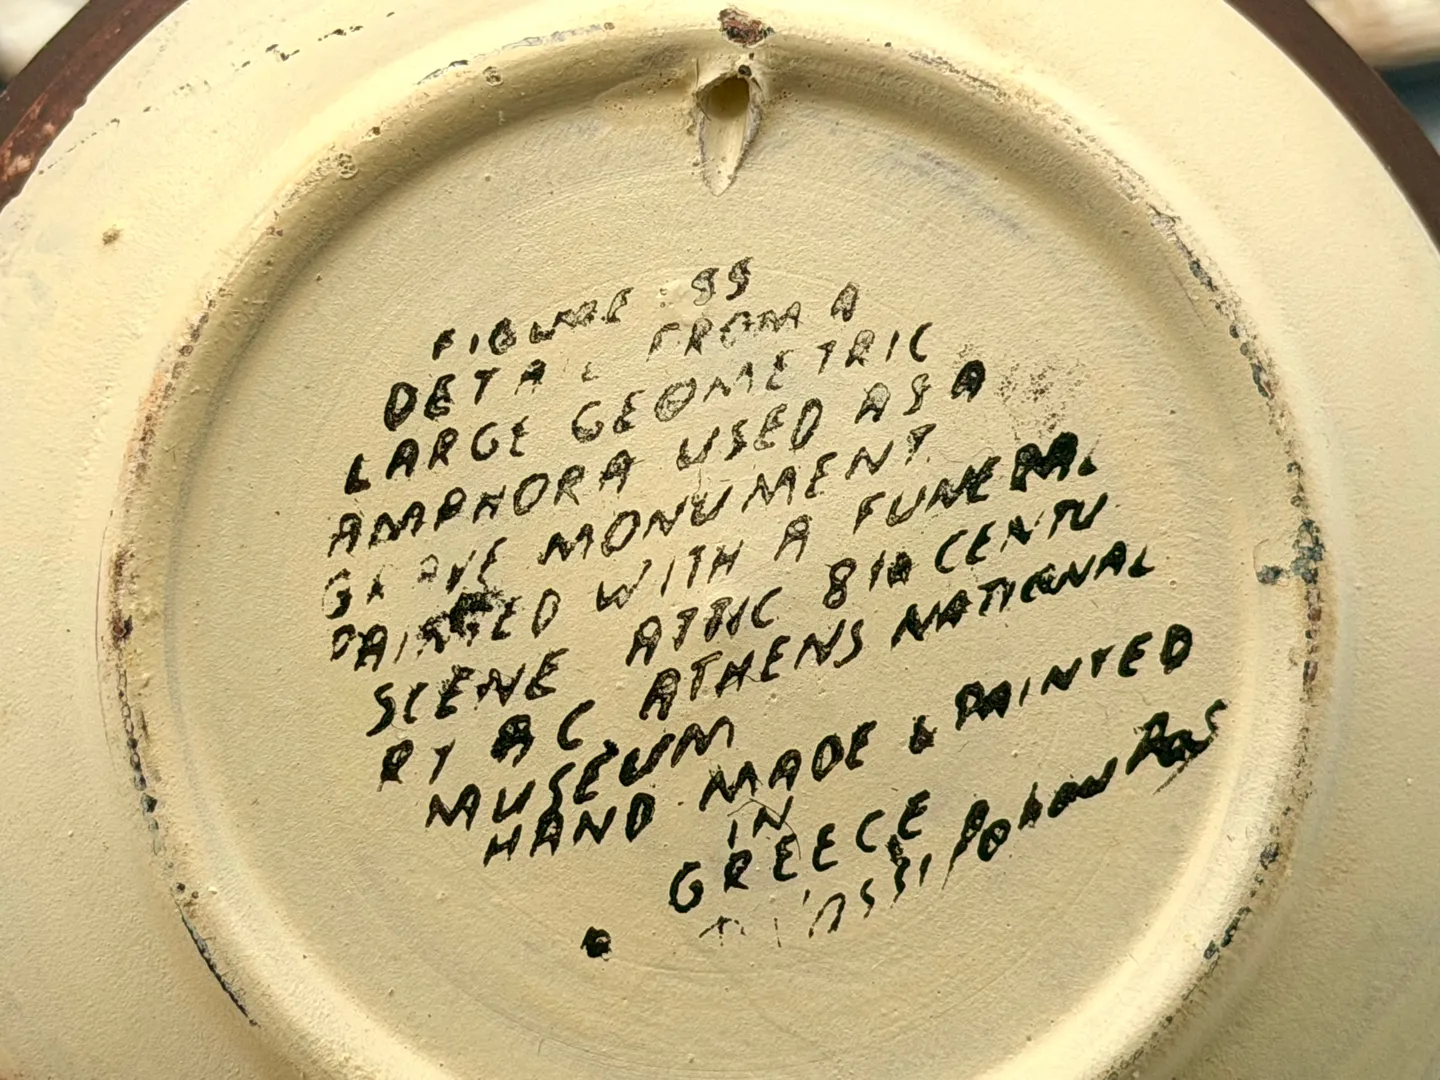 FIGURE : 55
DETAIL FROM A
LARGE GEOMETRIC
AMPHORA USED AS A
GRAVE MONUMENT.
PAINTED WITH A FUNERAL
SCENE ATTIC 8th CENTU
RY B.C. ATHENS NATIONAL
MUSEUM
HAND MADE & PAINTED
IN
GREECE